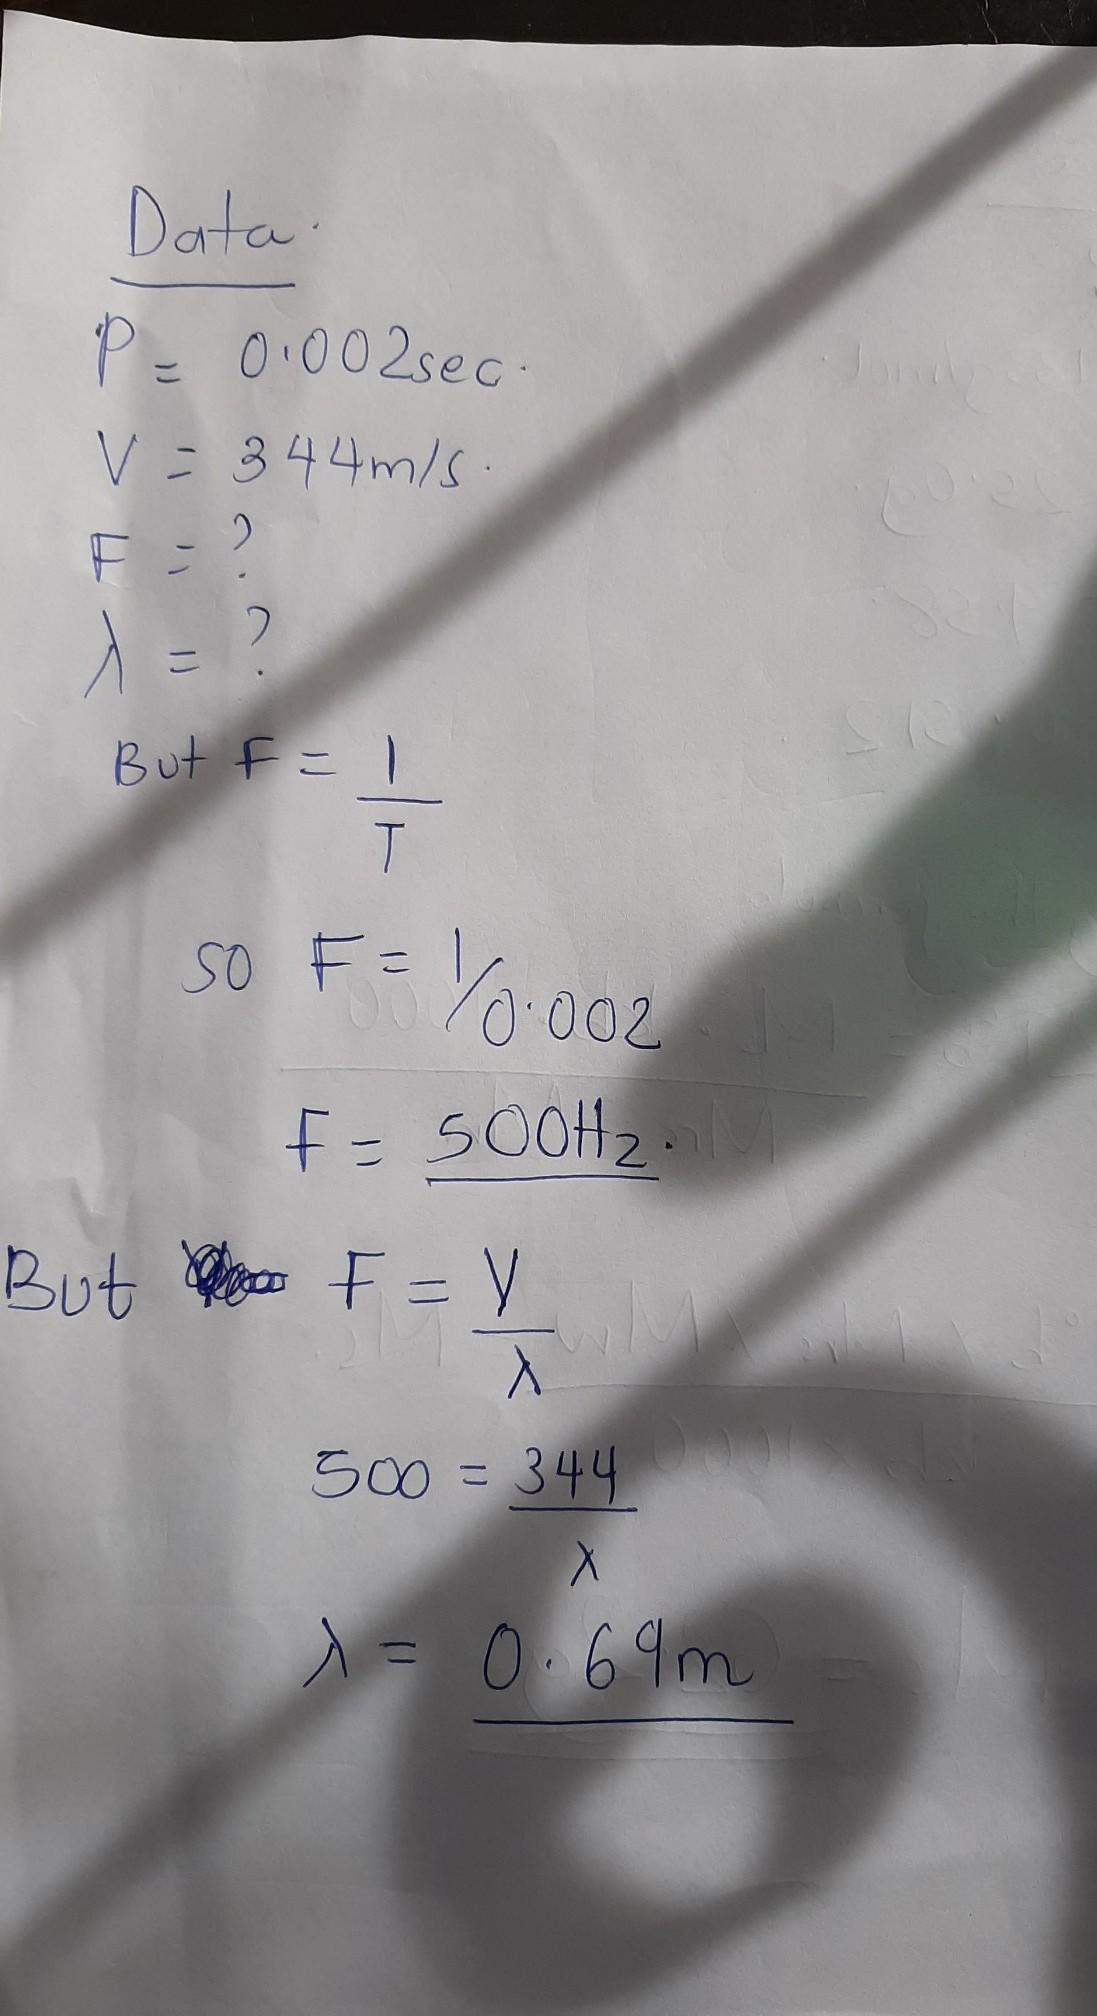 Data.
P = 0.002sec.
V = 344m/s.
F = ?
λ = ?
But F = 1
T
so F = 1/0.002
F = 500Hz.
But F = V
λ
500 = 344
λ
λ = 0.69m